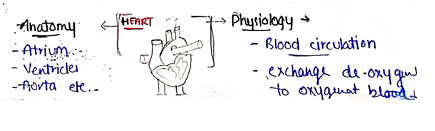 Anatomy ← HEART → Physiology →
- Atrium
- Ventricles
- Aorta etc.
- Blood circulation
- exchange de-oxygen
to oxygenat blood